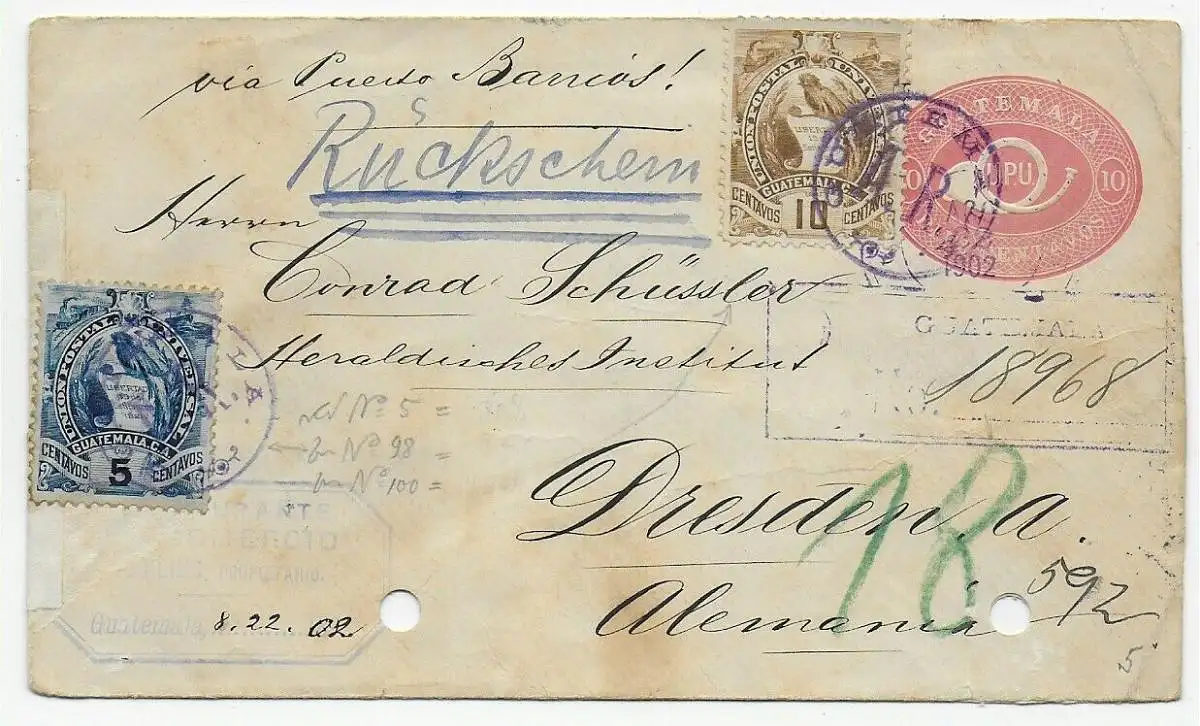 via Puerto Barrios!
Rückschein
Herrn
Conrad Schüssler
Heraldisches Institut
Dresden a.
Alemania
UNION POSTAL UNIVERSAL
LIBERTAD
GUATEMALA C.A.
CENTAVOS 10 CENTAVOS
TEMALA
U.P.U.
10
CENTAVOS
1902
GUATEMALA
18968
UNION POSTAL UNIVERSAL
LIBERTAD
GUATEMALA C.A.
CENTAVOS 5 CENTAVOS
Nº 5 =
Nº 98 =
Nº 100 =
18
592
5
PROPIETARIO.
Guatemala, 8.22.02